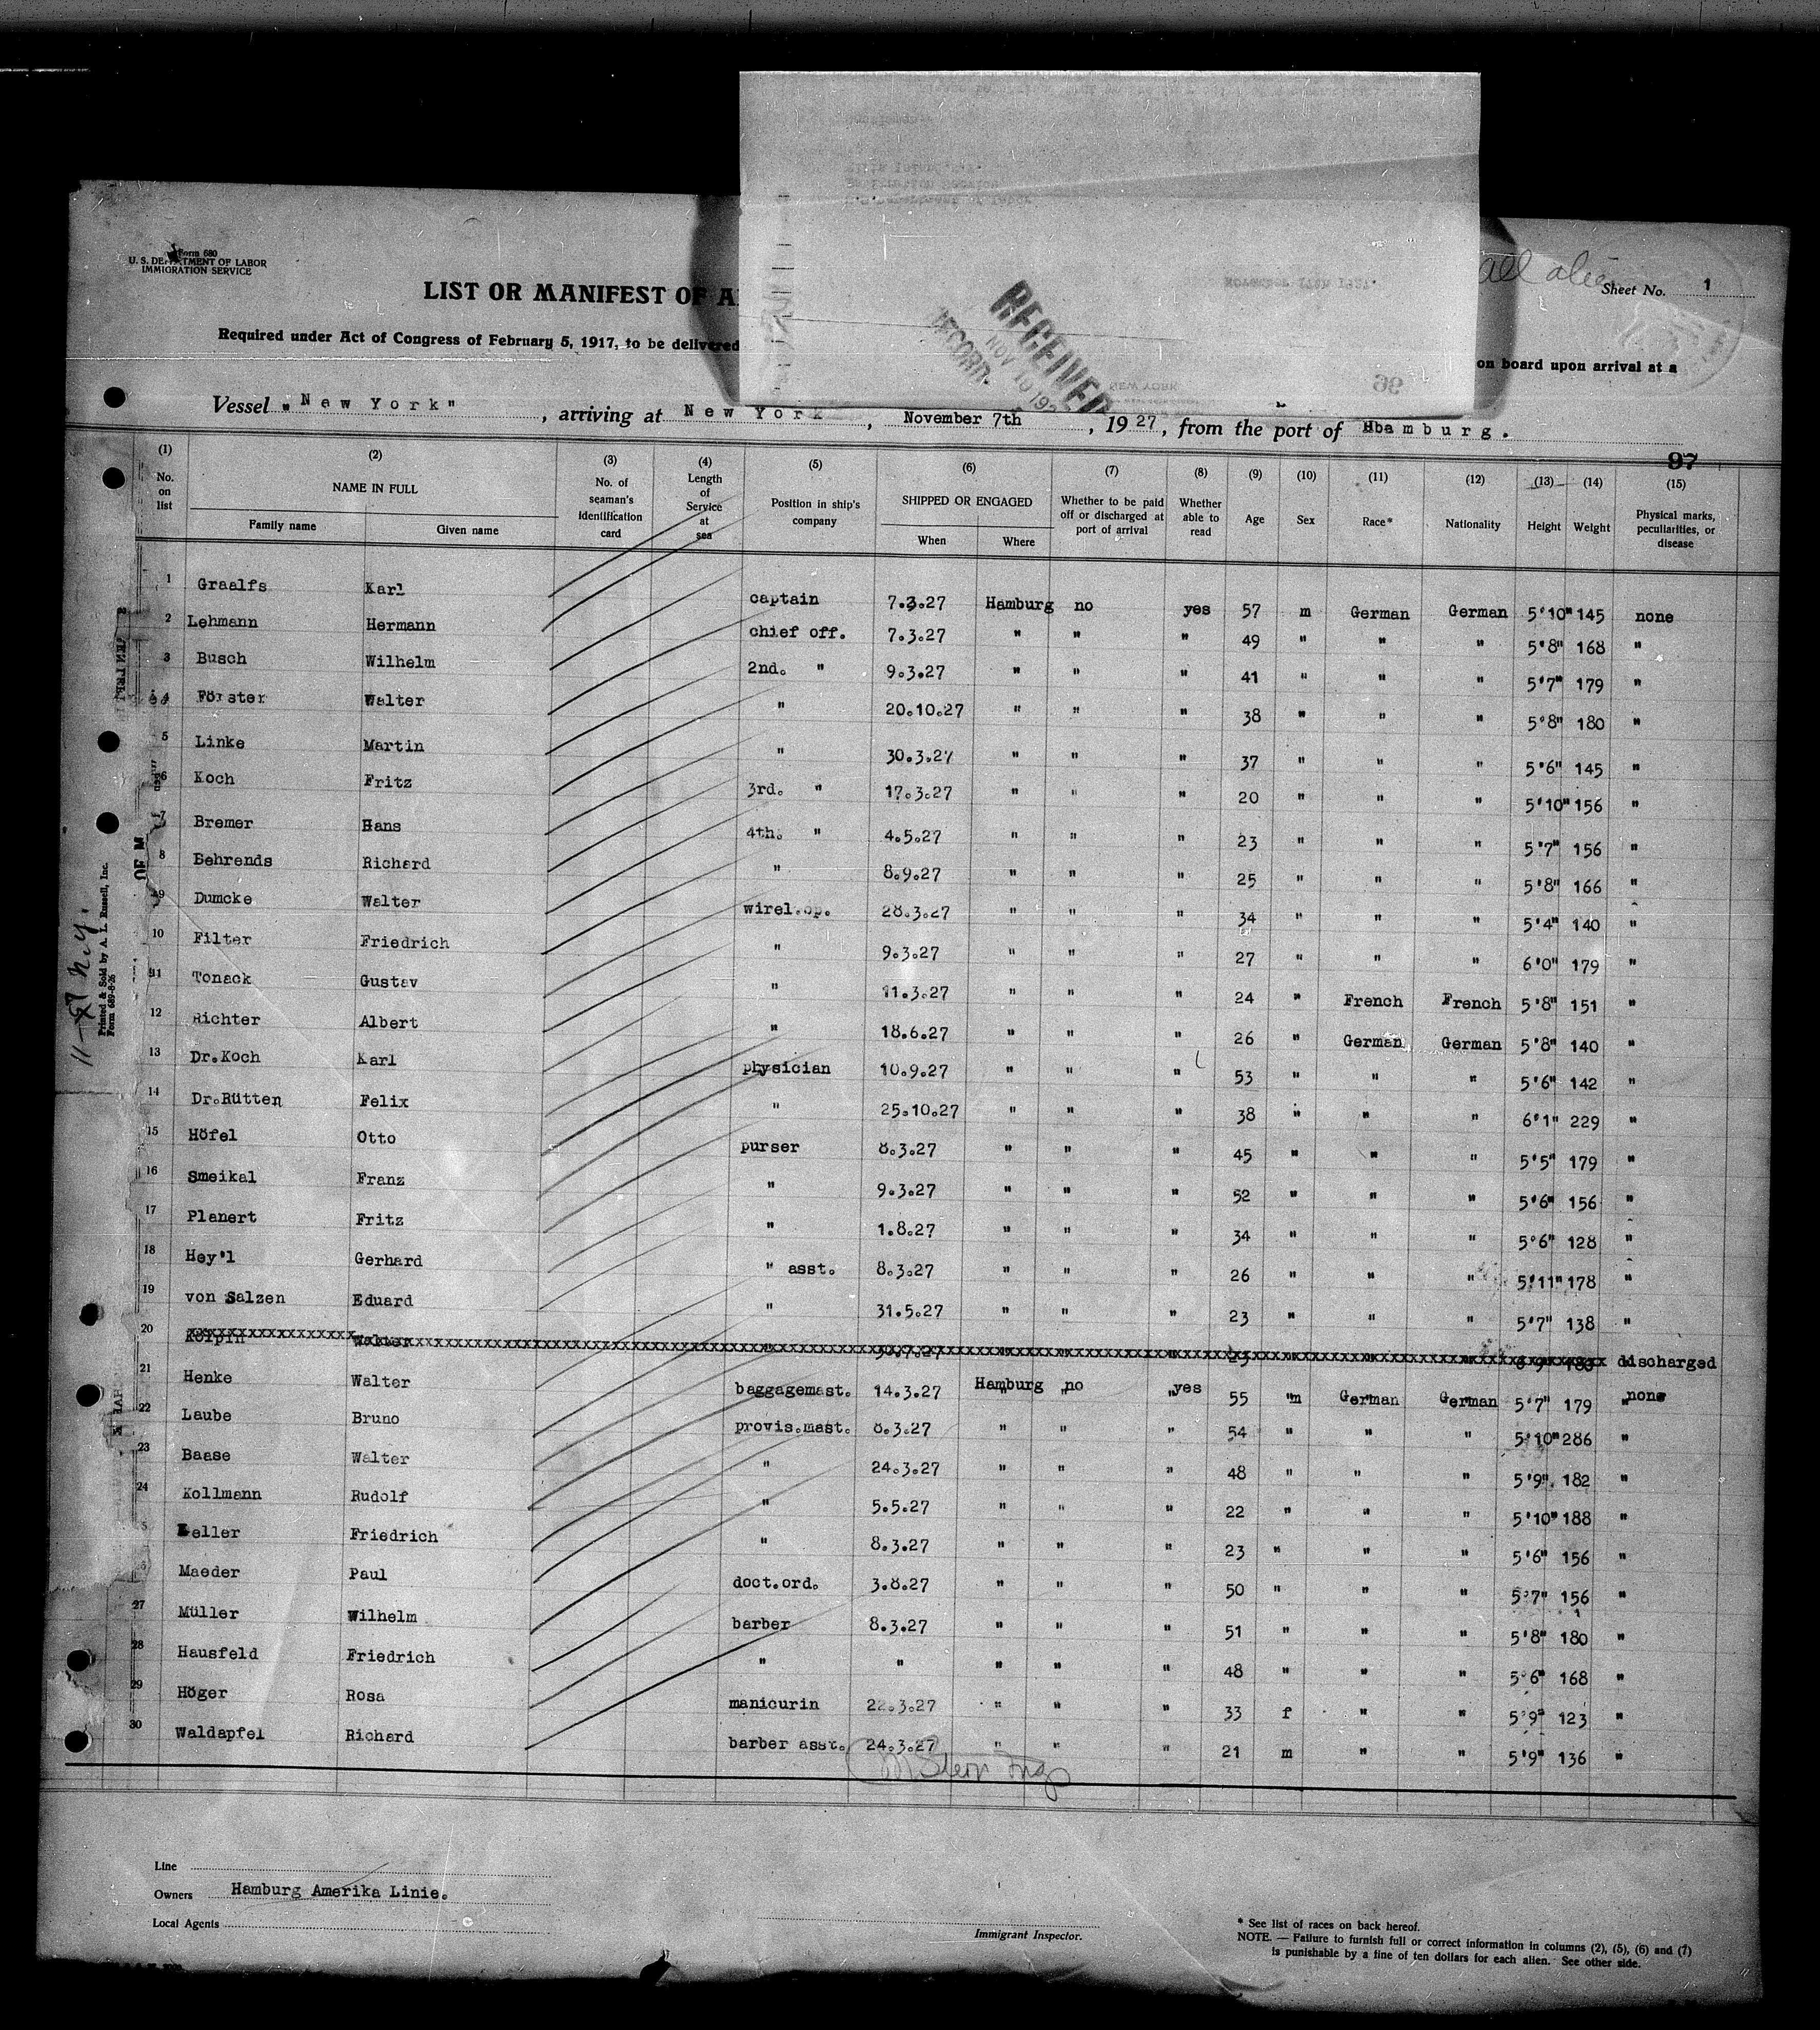 Form 680
U. S. DEPARTMENT OF LABOR
IMMIGRATION SERVICE
all alien
Sheet No. 1
LIST OR MANIFEST OF A
Required under Act of Congress of February 5, 1917, to be delivered
on board upon arrival at a
RECEIVED
NOV 10 192
RECORD
96
Vessel "New York", arriving at New York, November 7th, 1927, from the port of Hbamburg.
97
(1) (2) (3) (4) (5) (6) (7) (8) (9) (10) (11) (12) (13) (14) (15)
No. on list NAME IN FULL Family name Given name No. of seaman's identification card Length of Service at sea Position in ship's company SHIPPED OR ENGAGED When Where Whether to be paid off or discharged at port of arrival Whether able to read Age Sex Race* Nationality Height Weight Physical marks, peculiarities, or disease
1 Graalfs Karl captain 7.3.27 Hamburg no yes 57 m German German 5'10" 145 none
2 Lehmann Hermann chief off. 7.3.27 " " " 49 " " " 5'8" 168 "
3 Busch Wilhelm 2nd. " 9.3.27 " " " 41 " " " 5'7" 179 "
4 Förster Walter " 20.10.27 " " " 38 " " " 5'8" 180 "
5 Linke Martin " 30.3.27 " " " 37 " " " 5'6" 145 "
6 Koch Fritz 3rd. " 17.3.27 " " " 20 " " " 5'10" 156 "
7 Bremer Hans 4th. " 4.5.27 " " " 23 " " " 5'7" 156 "
8 Behrends Richard " 8.9.27 " " " 25 " " " 5'8" 166 "
9 Dumcke Walter wirel.op. 28.3.27 " " " 34 " " " 5'4" 140 "
10 Filter Friedrich " 9.3.27 " " " 27 " " " 6'0" 179 "
11 Tonack Gustav " 11.3.27 " " " 24 " French French 5'8" 151 "
12 Richter Albert " 18.6.27 " " " 26 " German German 5'8" 140 "
13 Dr.Koch Karl physician 10.9.27 " " " 53 " " " 5'6" 142 "
14 Dr.Rütten Felix " 25.10.27 " " " 38 " " " 6'1" 229 "
15 Höfel Otto purser 8.3.27 " " " 45 " " " 5'5" 179 "
16 Smeikal Franz " 9.3.27 " " " 52 " " " 5'6" 156 "
17 Planert Fritz " 1.8.27 " " " 34 " " " 5'6" 128 "
18 Hey'l Gerhard " asst. 8.3.27 " " " 26 " " " 5'11" 178 "
19 von Salzen Eduard " 31.5.27 " " " 23 " " " 5'7" 138 "
20 Kolpin Walter " " " " " " " discharged
21 Henke Walter baggagemast. 14.3.27 Hamburg no yes 55 m German German 5'7" 179 none
22 Laube Bruno provis.mast. 8.3.27 " " " 54 " " " 5'10" 286 "
23 Baase Walter " 24.3.27 " " " 48 " " " 5'9" 182 "
24 Kollmann Rudolf " 5.5.27 " " " 22 " " " 5'10" 188 "
5 Keller Friedrich " 8.3.27 " " " 23 " " " 5'6" 156 "
6 Maeder Paul doct.ord. 3.8.27 " " " 50 " " " 5'7" 156 "
27 Müller Wilhelm barber 8.3.27 " " " 51 " " " 5'8" 180 "
28 Hausfeld Friedrich " " " " " 48 " " " 5'6" 168 "
29 Höger Rosa manicurin 22.3.27 " " " 33 f " " 5'9" 123 "
30 Waldapfel Richard barber asst. 24.3.27 " " " 21 m " " 5'9" 136 "
Printed & Sold by A. L. Russell, Inc.
Form 689-8-26
Line
Owners Hamburg Amerika Linie.
Local Agents
Immigrant Inspector.
* See list of races on back hereof.
NOTE. — Failure to furnish full or correct information in columns (2), (5), (6) and (7)
is punishable by a fine of ten dollars for each alien. See other side.